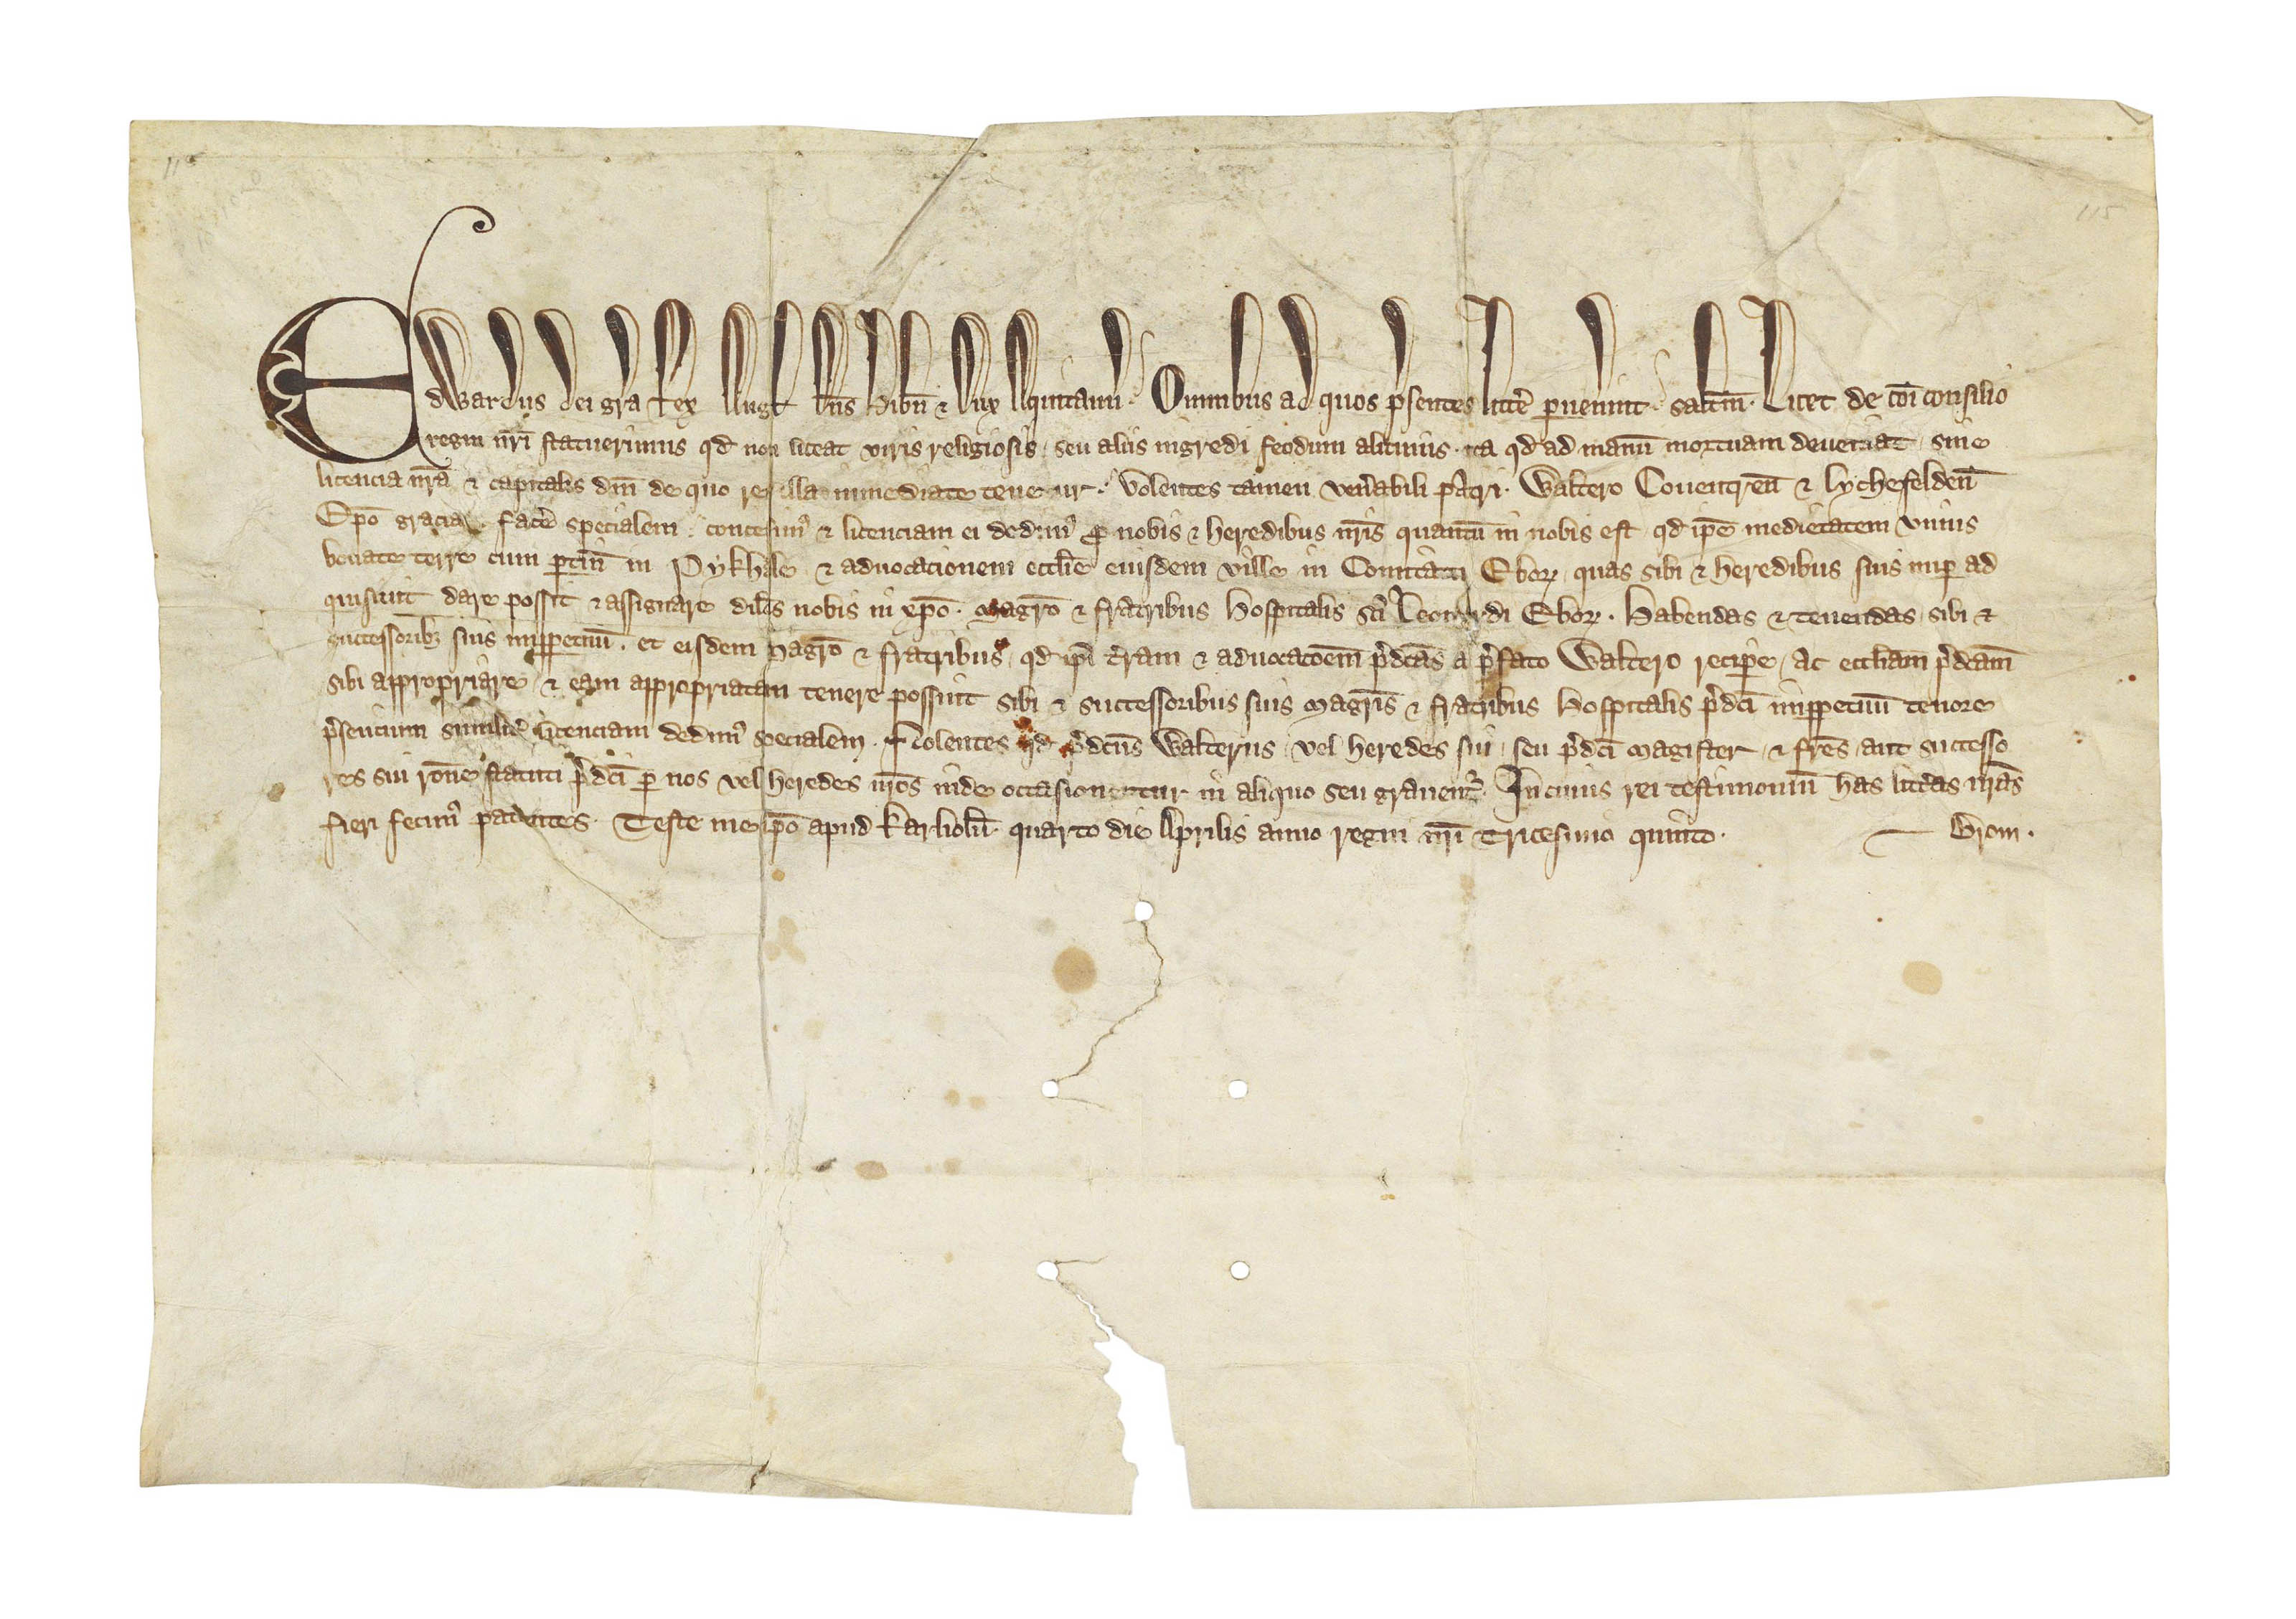 115
115
Edwardus dei gra Rex Angt dns Hibn & Dux Aquitann. Omnibus ad quos psentes littere pvenint saltm. Licet de coi consilio
regni nri statuerimus qd non liceat viris religiosis seu aliis ingredi feodum alicuius ita qd ad manu mortuam deveniat sine
licencia nra & capitalis dni de quo res illa immediate tenetur. Volentes tamen venabili patri Waltero Coventren & Lychefelden
Epo graciam face specialem concessim & licenciam ei dedim pro nobis & heredibus nris quantu in nobis est qd ipe medietatem unius
bovate terre cum ptin in Pykhale & advocacionem ecclie eiusdem ville in Comitatu Ebor quas sibi & heredibus suis nup ad
quisivit dare possit & assignare dilcis nobis in xpo Magro & fratribus Hospitalis sci Leonardi Ebor. Habendas & tenendas sibi &
successorib suis imppetuu. et eisdem Magro & fratribus qd ipi tram & advocacoem pdcas a pfato Waltero recipe ac eccliam pdcam
sibi appropriare & eam appropriatam tenere possint sibi & successoribus suis Magris & fratribus Hospitalis pdci imppetuu tenore
psencium similit licenciam dedim specialem. Nolentes qd pdcus Walterus vel heredes sui seu pdci Magister & fres aut successo
res sui rone statuti pdci p nos vel heredes nros inde occasionentur in aliquo seu gravent. In cuius rei testimoniu has litteras nras
fieri fecim patentes. Teste me ipo apud Karliolu quarto die Aprilis anno regni nri Tricesimo quinto.
Brom.